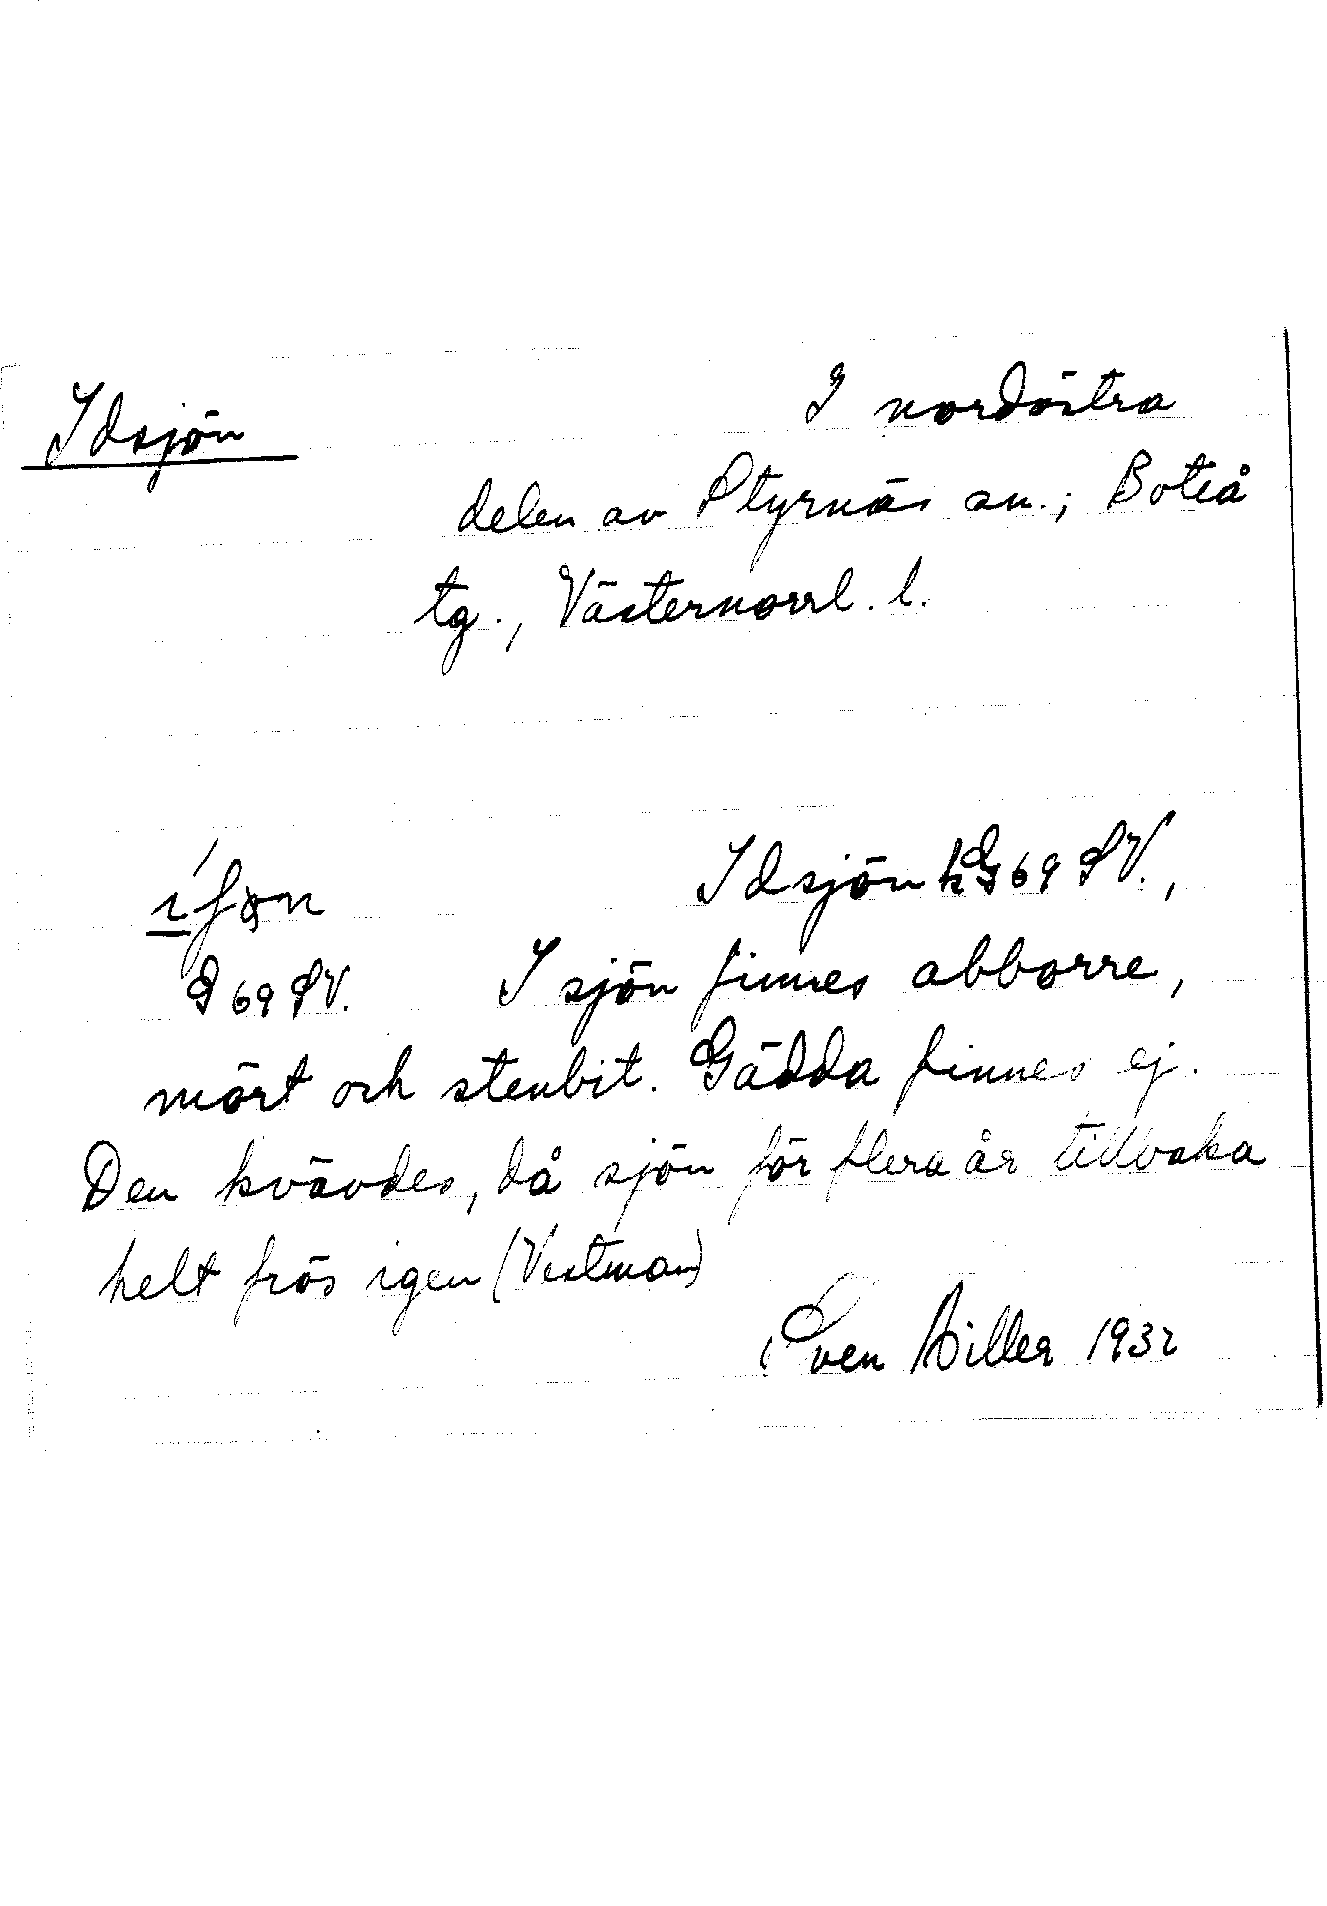 Idsjön
I nordöstra
delen av Styrnäs sn., Boteå
tg., Västernorrl. l.
Idsjön k G 69 SV.,
G 69 SV.
I sjön finnes abborre,
mört och stenbit. Gädda finnes ej.
Den kvävdes, då sjön för flera år tillbaka
helt frös igen (Vestman)
Sven Hiller 1932